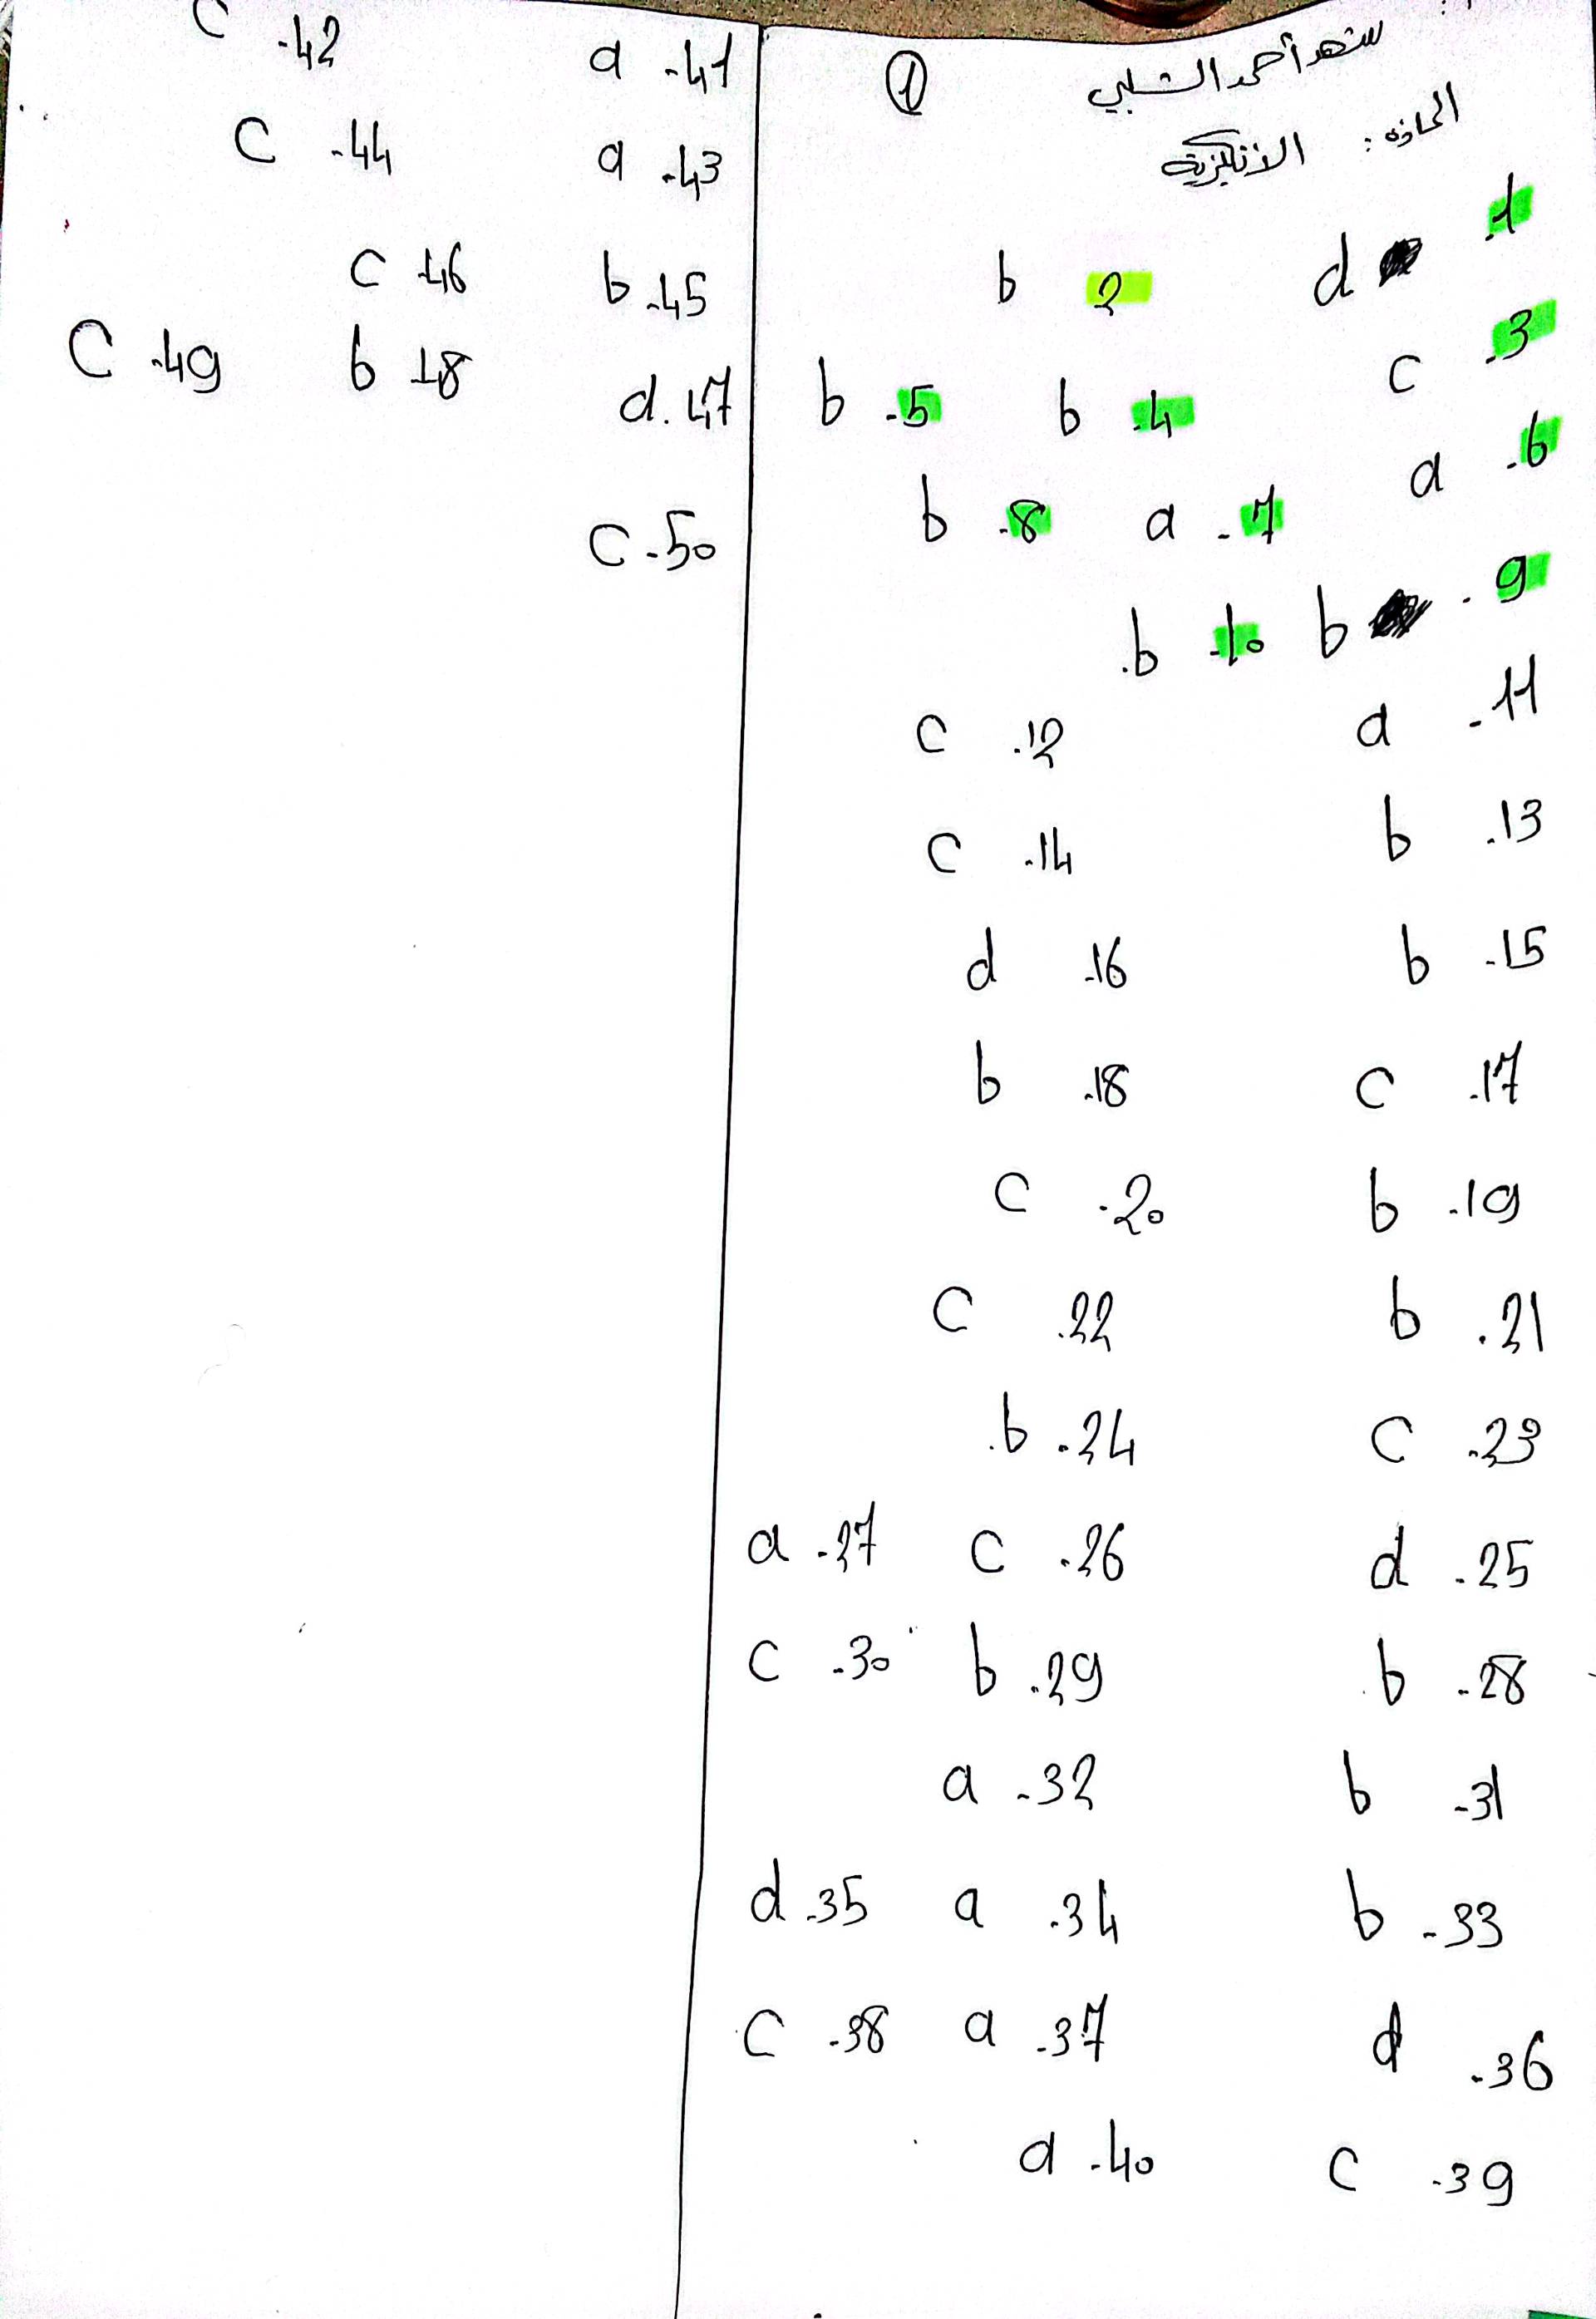 أحمد الشلبي
①
المادة: الانكليزية
1. d 2 b
3. c 4. b 5. b
6. a 7. a 8. b
9. b 10. b.
11. a 12. c
13. b 14. c
15. b 16. d
17. c 18. b
19. b 20. c
21. b 22. c
23. c 24. b.
25. d 26. c 27. a
28. b 29. b 30. c
31. b 32. a
33. b 34. a 35. d
36. d 37. a 38. c
39. c 40. a
41. a 42. c
43. a 44. c
45. b 46. c
47. d 48. b 49. c
50. c